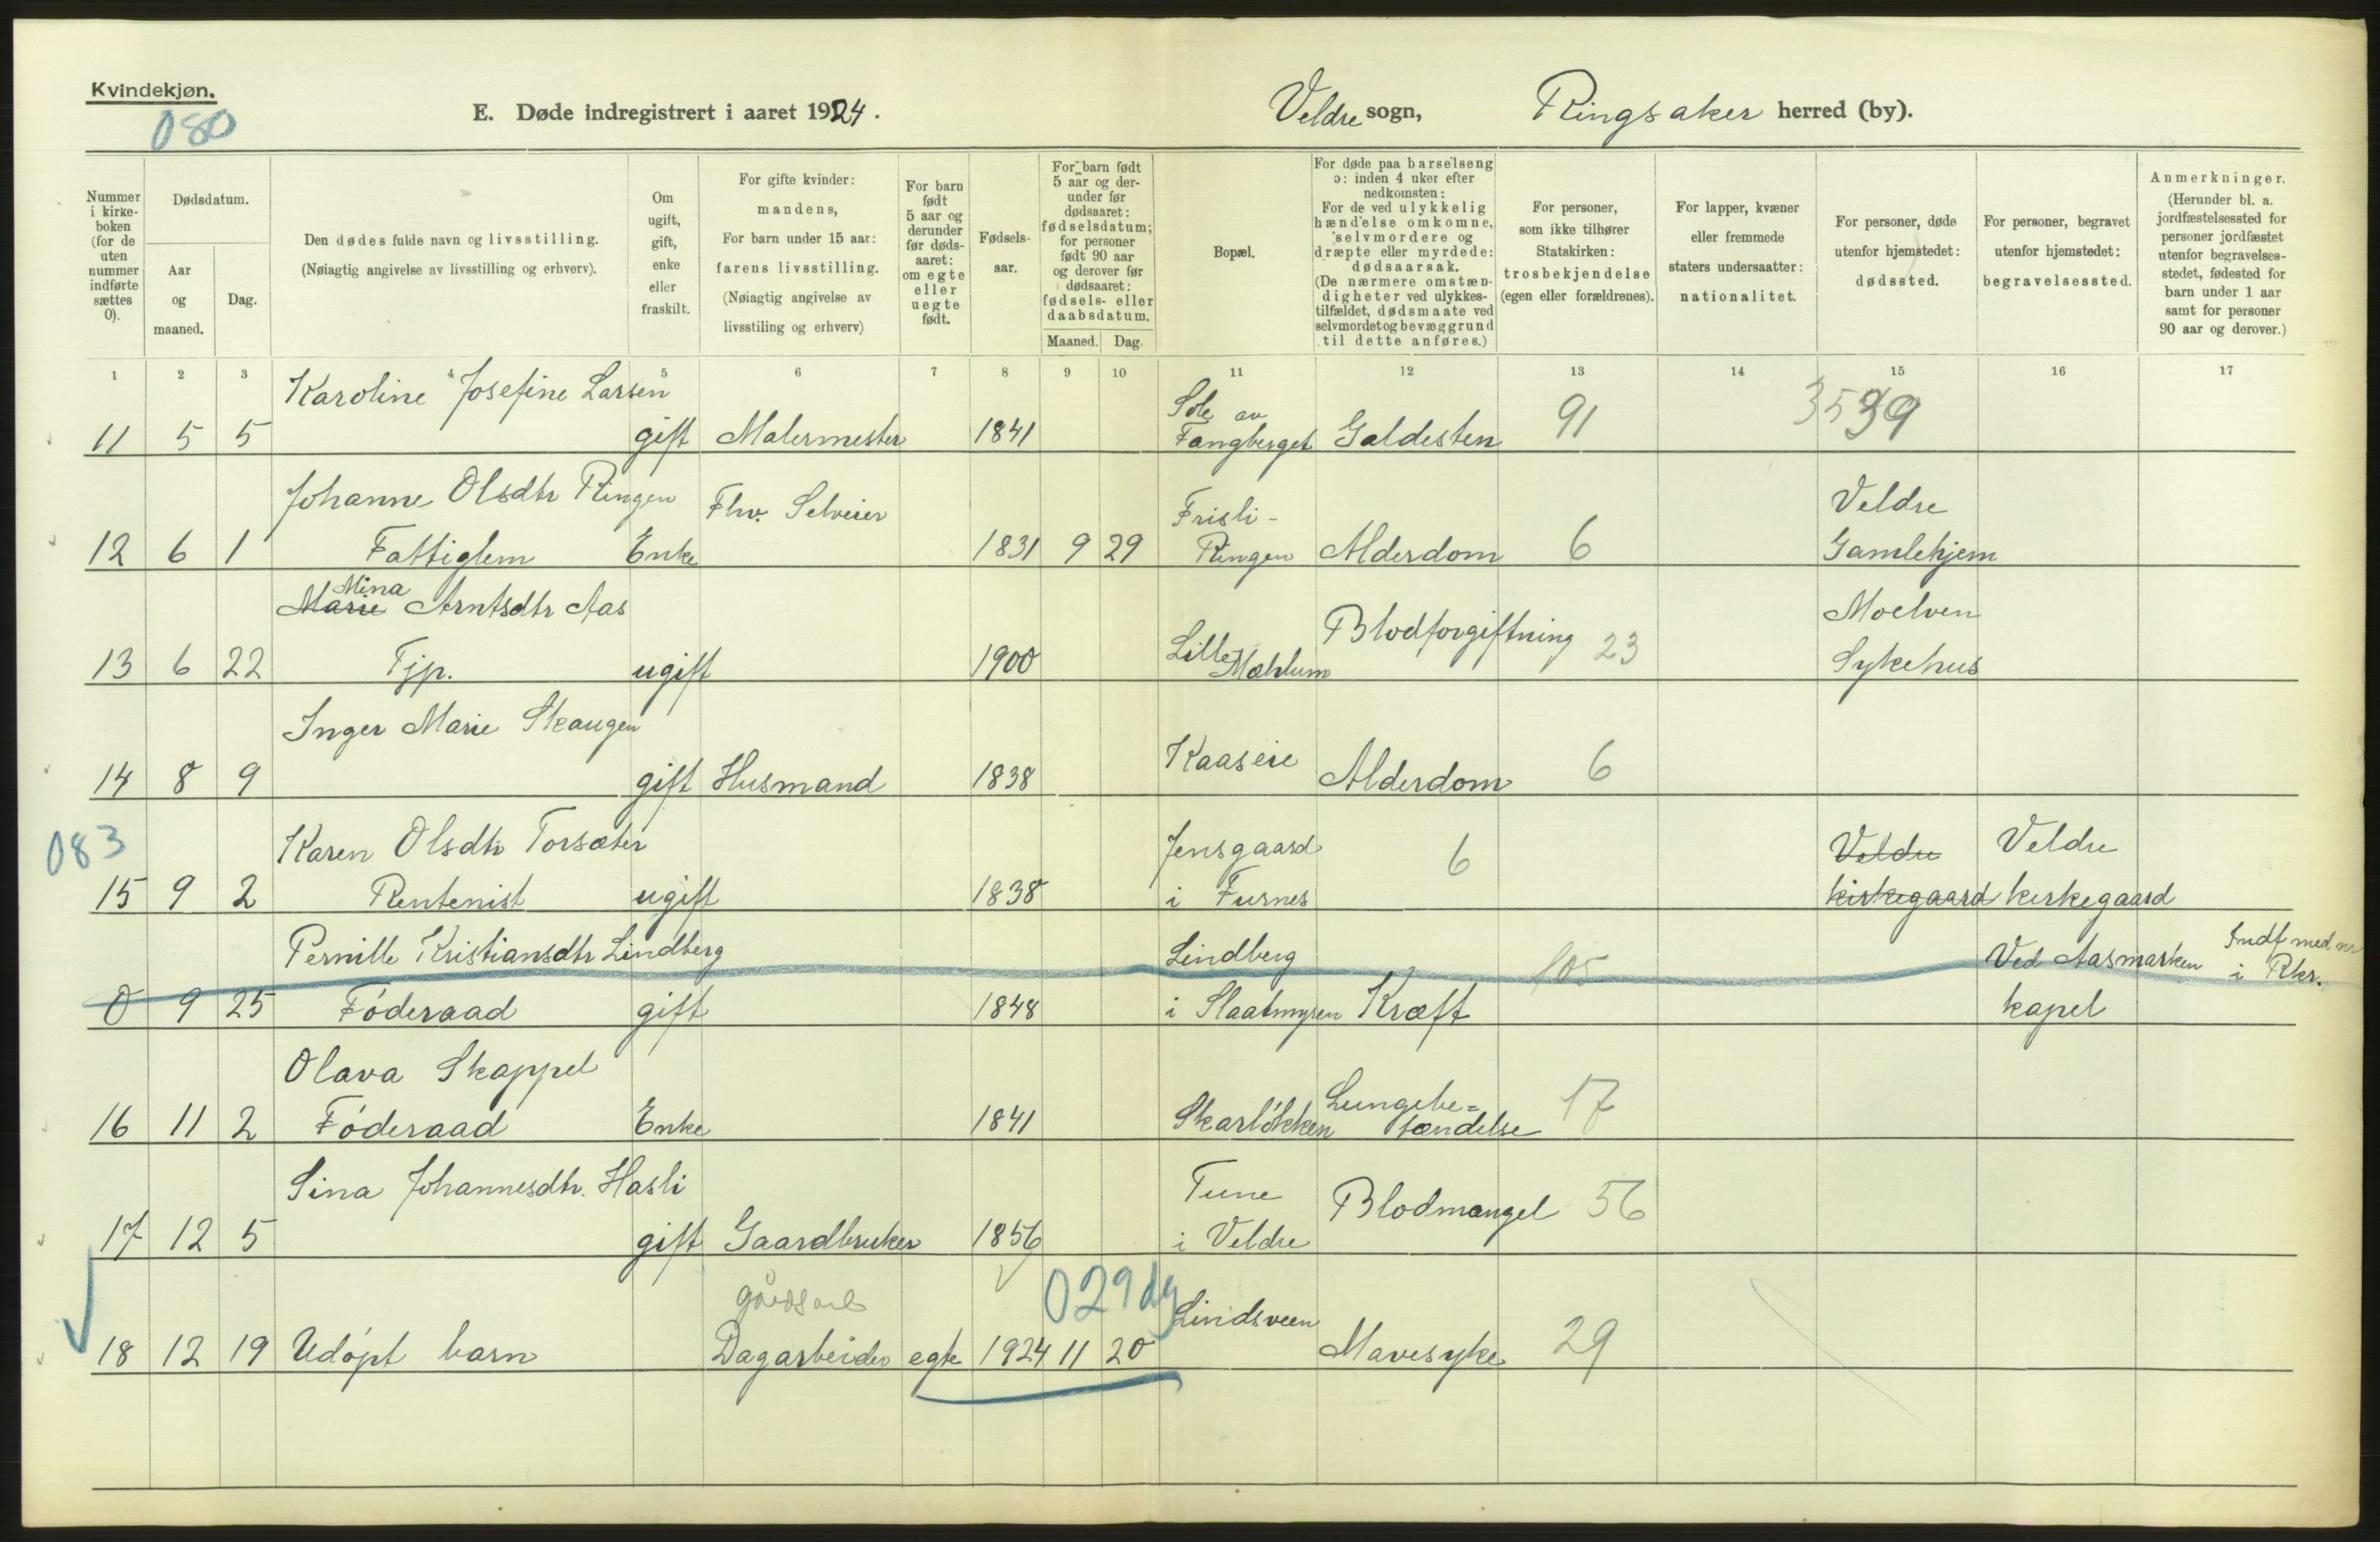 Kvindekjøn.
080
E. Døde indregistrert i aaret 1924.
Veldre sogn, Ringsaker herred (by).
Nummer i kirkeboken (for de uten nummer indførte sættes 0).
Dødsdatum.
Aar og maaned.
Dag.
Den dødes fulde navn og livsstilling.
(Nøiagtig angivelse av livsstilling og erhverv).
Om ugift, gift, enke eller fraskilt.
For gifte kvinder: mandens,
For barn under 15 aar: farens livsstilling.
(Nøiagtig angivelse av livsstiling og erhverv)
For barn født 5 aar og derunder før dødsaaret: om egte eller uegte født.
Fødselsaar.
For barn født 5 aar og derunder før dødsaaret: fødselsdatum; for personer født 90 aar og derover før dødsaaret: fødsels- eller daabsdatum.
Maaned. Dag.
Bopæl.
For døde paa barselseng ɔ: inden 4 uker efter nedkomsten:
For de ved ulykkelig hændelse omkomne, selvmordere og dræpte eller myrdede: dødsaarsak.
(De nærmere omstændigheter ved ulykkestilfældet, dødsmaate ved selvmordet og bevæggrund til dette anføres.)
For personer, som ikke tilhører Statskirken: trosbekjendelse (egen eller forældrenes).
For lapper, kvæner eller fremmede staters undersaatter: nationalitet.
For personer, døde utenfor hjemstedet: dødssted.
For personer, begravet utenfor hjemstedet: begravelsessted.
Anmerkninger.
(Herunder bl. a. jordfæstelsessted for personer jordfæstet utenfor begravelsesstedet, fødested for barn under 1 aar samt for personer 90 aar og derover.)
1 2 3 4 5 6 7 8 9 10 11 12 13 14 15 16 17
Karoline Josefine Larsen Sole av 3539
11 5 5 gift Malermester 1841 Fangberget Galdesten 91
Johanne Olsdtr Ringen Fhv. Selveier Frisli- Veldre
12 6 1 Fattiglem Enke 1831 9 29 Ringen Alderdom 6 Gamlehjem
Mina
Marie Arntsdtr Aas Blodforgiftning 23 Moelven
13 6 22 Tjp. ugift 1900 Lille Mæhlum Sykehus
Inger Marie Skaugen
14 8 9 gift Husmand 1838 Kaaseie Alderdom 6
083 Karen Olsdtr Torsæter Jensgaard 6 Veldre Veldre
15 9 2 Rentenist ugift 1838 i Furnes kirkegaard kirkegaard
Pernille Kristiansdtr Lindberg Lindberg 105 Ved Aasmarken Indf med nr i Rkr.
0 9 25 Føderaad gift 1848 i Slaatmyren Kræft kapel
Olava Skappel Lungebe=
16 11 2 Føderaad Enke 1841 Skarløkken tændelse 17
Sina Johannesdtr. Hasli Tune
17 12 5 gift Gaardbruker 1856 i Veldre Blodmangel 56
gårdsarb 029dg Lindsveen
18 12 19 Udøpt barn Dagarbeider egte 1924 11 20 Mavesyke 29